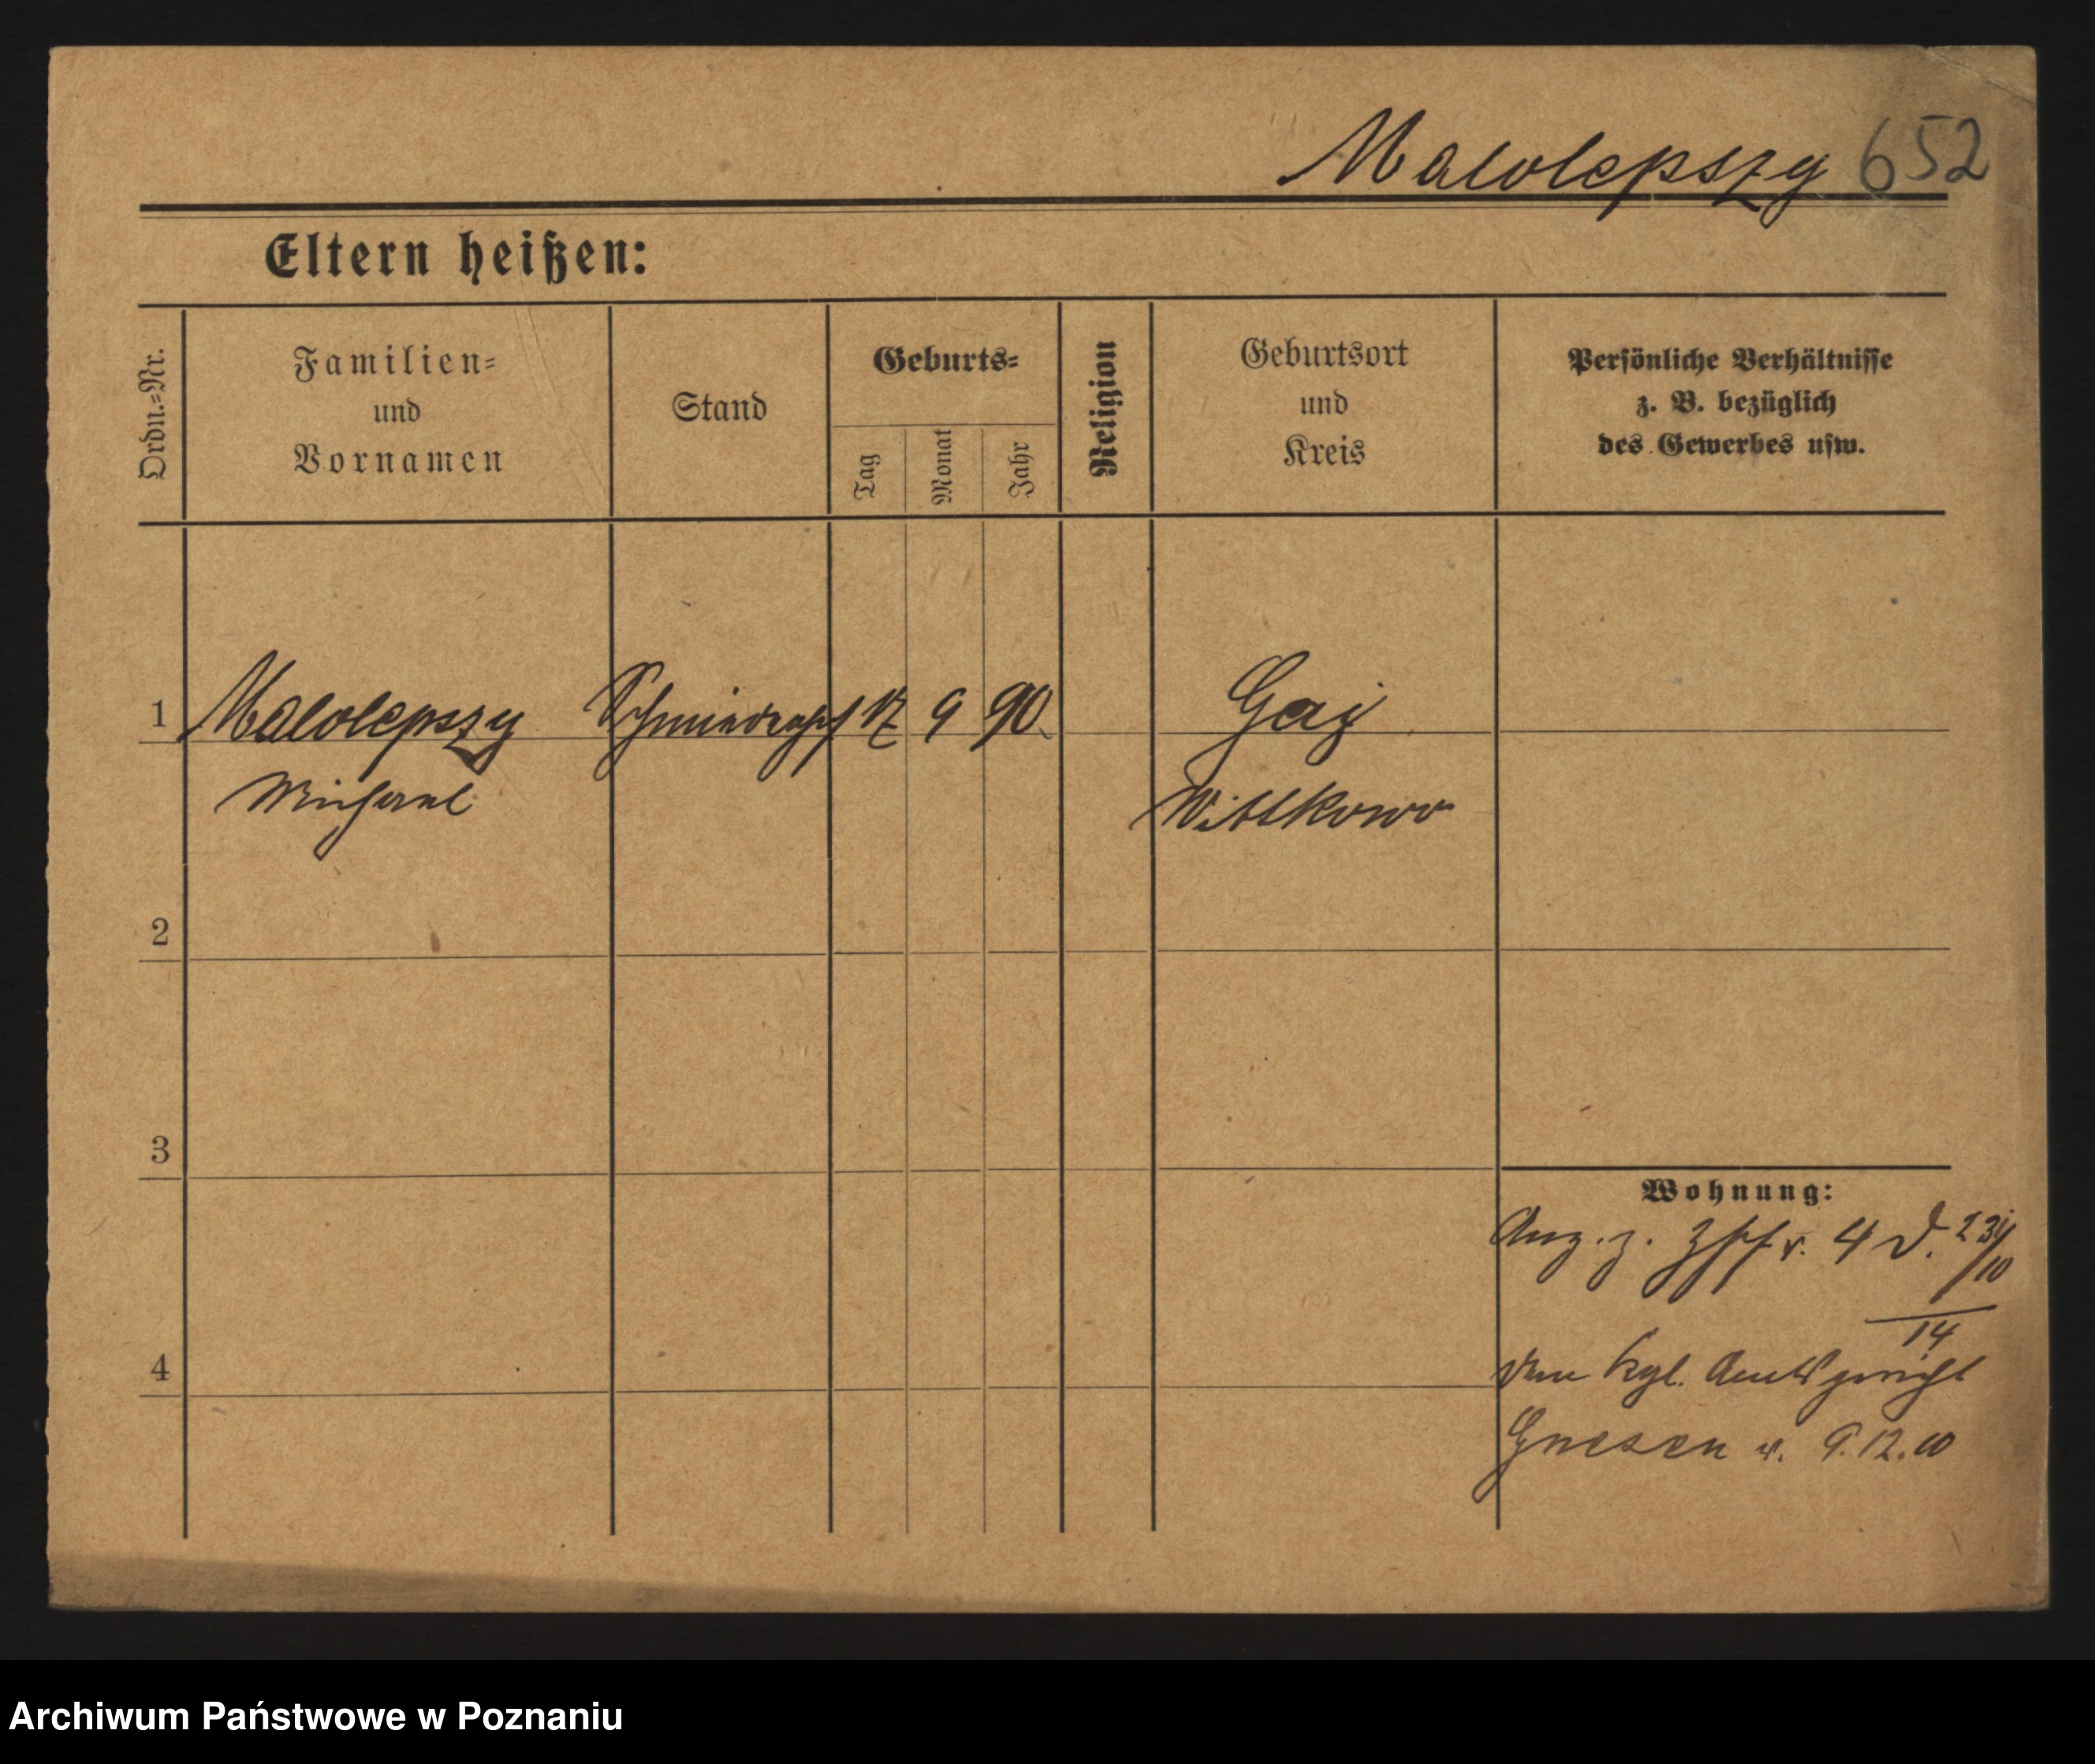 Malolepszy 652
Eltern heißen:
Ordn.=Nr.
Familien=
und
Vornamen
Stand
Geburts=
Tag
Monat
Jahr
Religion
Geburtsort
und
Kreis
Persönliche Verhältnisse
z. B. bezüglich
des Gewerbes usw.
1 Malolepszy 17 9 90. Gaj
Michael Wittkowo
2
3
Wohnung:
Anz. z. 4 d. 23/10
14
4
dem kgl. Amtsgericht
Gnesen v. 9.12.10
Archiwum Państwowe w Poznaniu